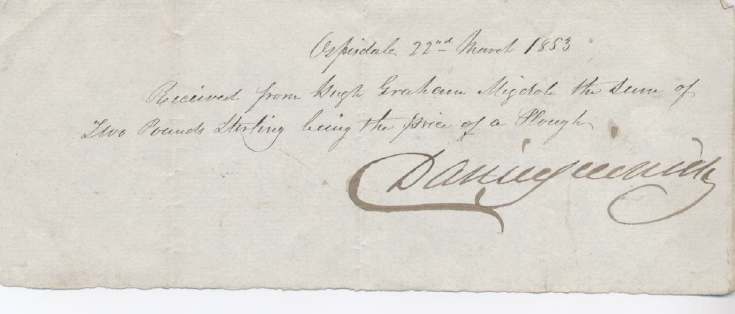 Ospisdale 22nd March 1853
Received from Hugh Graham Migdale the sum of
Two Pounds Sterling being the price of a Plough